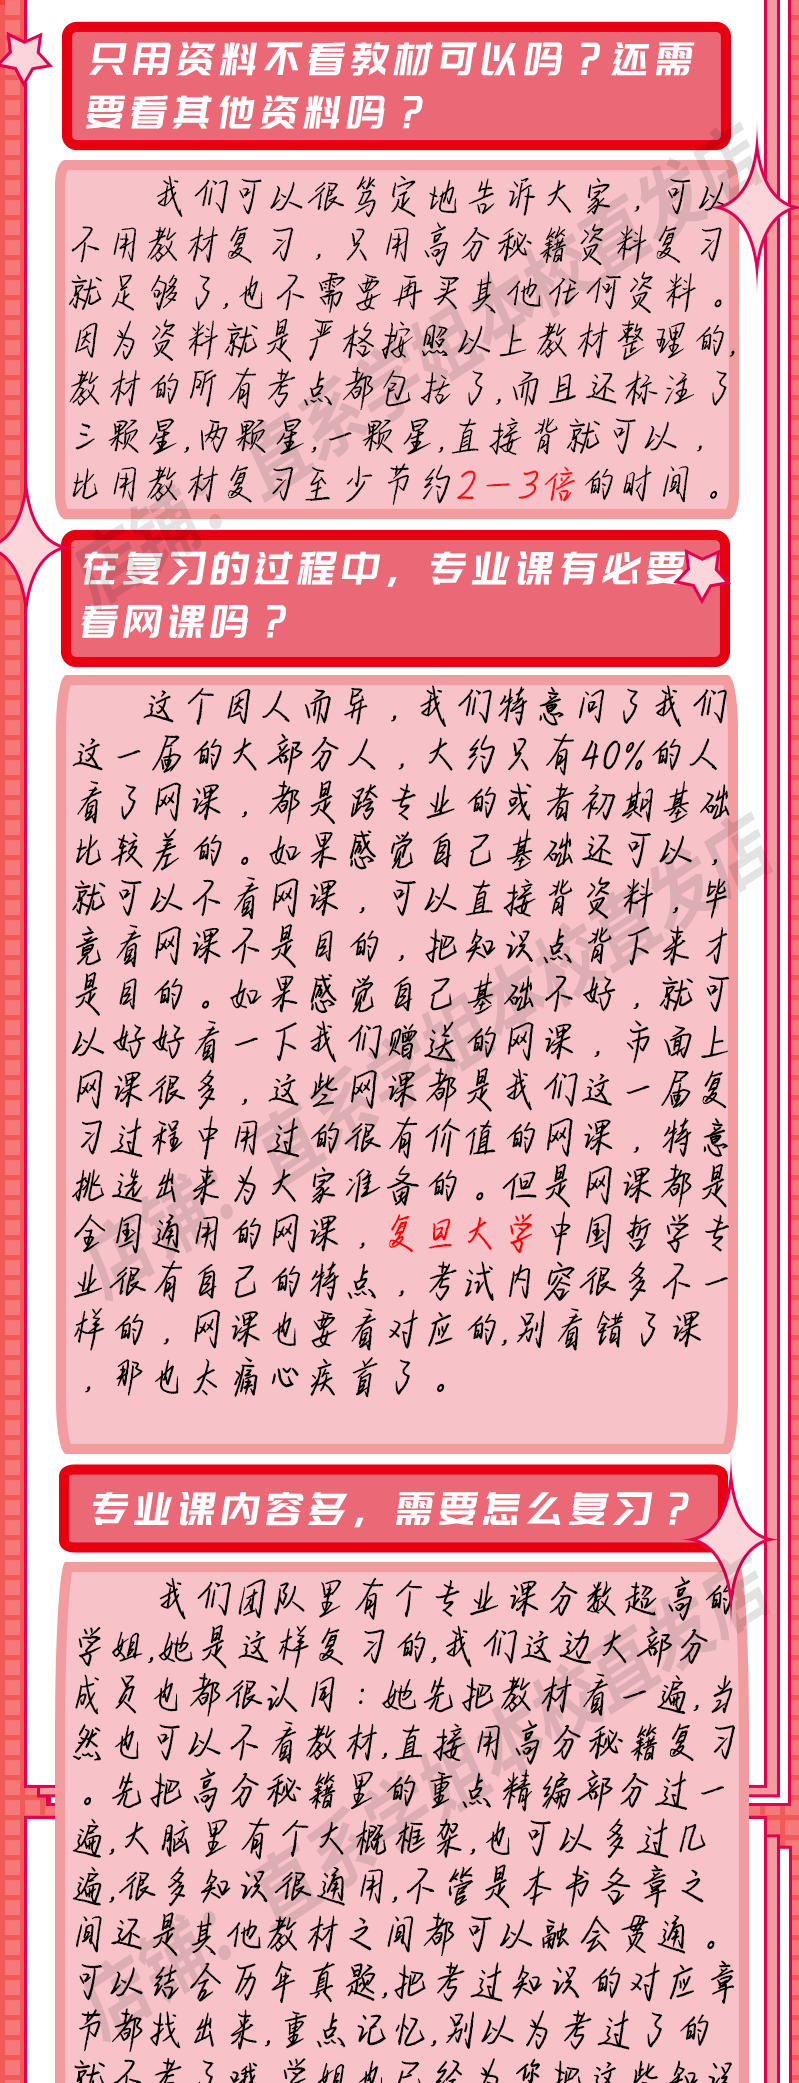 只用资料不看教材可以吗？还需
要看其他资料吗？
我们可以很笃定地告诉大家，可以
不用教材复习，只用高分秘籍资料复习
就足够了,也不需要再买其他任何资料。
因为资料就是严格按照以上教材整理的,
教材的所有考点都包括了,而且还标注了
三颗星,两颗星,一颗星,直接背就可以，
比用教材复习至少节约2-3倍的时间。
在复习的过程中，专业课有必要
看网课吗？
这个因人而异，我们特意问了我们
这一届的大部分人，大约只有40%的人
看了网课，都是跨专业的或者初期基础
比较差的。如果感觉自己基础还可以，
就可以不看网课，可以直接背资料，毕
竟看网课不是目的，把知识点背下来才
是目的。如果感觉自己基础不好，就可
以好好看一下我们赠送的网课，市面上
网课很多，这些网课都是我们这一届复
习过程中用过的很有价值的网课，特意
挑选出来为大家准备的。但是网课都是
全国通用的网课，复旦大学中国哲学专
业很有自己的特点，考试内容很多不一
样的，网课也要看对应的,别看错了课
，那也太痛心疾首了。
专业课内容多，需要怎么复习？
我们团队里有个专业课分数超高的
学姐,她是这样复习的,我们这边大部分
成员也都很认同：她先把教材看一遍,当
然也可以不看教材,直接用高分秘籍复习
。先把高分秘籍里的重点精编部分过一
遍,大脑里有个大概框架,也可以多过几
遍,很多知识很通用,不管是本书各章之
间还是其他教材之间都可以融会贯通。
可以结合历年真题,把考过知识的对应章
节都找出来,重点记忆,别以为考过了的
就不考了哦,学姐也已经为您把这些知识
店铺：直系学姐本校直发店
店铺：直系学姐本校直发店
店铺：直系学姐本校直发店